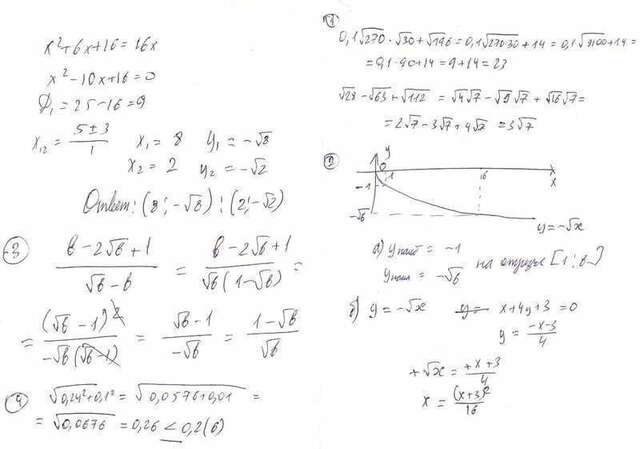 x² + 6x + 16 = 16x
x² - 10x + 16 = 0
D₁ = 25 - 16 = 9
x₁₂ = (5 ± 3)/1 x₁ = 8 y₁ = -√8
x₂ = 2 y₂ = -√2
Ответ: (8; -√8); (2; -√2)
3
(b - 2√b + 1)/(√b - b) = (b - 2√b + 1)/(√b(1 - √b)) =
= (√b - 1)²/(-√b(√b - 1)) = (√b - 1)/(-√b) = (1 - √b)/√b
4
√(0,24² + 0,1²) = √(0,0576 + 0,01) =
= √0,0676 = 0,26 < 0,2(6)
1
0,1√270 · √30 + √196 = 0,1√(270·30) + 14 = 0,1√8100 + 14 =
= 0,1 · 90 + 14 = 9 + 14 = 23
√28 - √63 + √112 = √4√7 - √9√7 + √16√7 =
= 2√7 - 3√7 + 4√7 = 3√7
2
y
0 1 16 x
-1
-√6
y = -√x
а) yнаиб = -1
yнаим = -√6 на отрезке [1; 6]
б) y = -√x x + 4y + 3 = 0
y = (-x - 3)/4
+√x = (+x + 3)/4
x = (x + 3)²/16